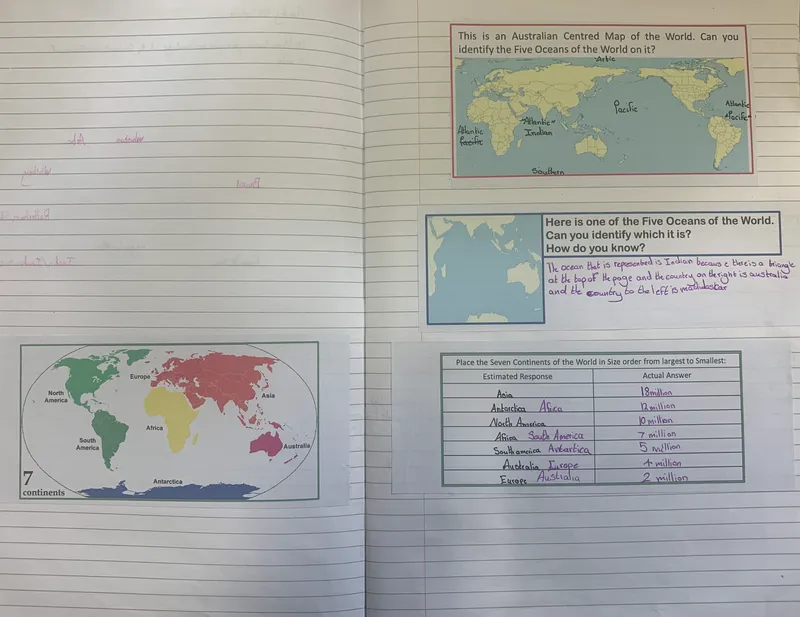 North America
Europe
Asia
Africa
South America
Australia
7 continents
Antarctica
This is an Australian Centred Map of the World. Can you
identify the Five Oceans of the World on it?
Artic
Pacific
Atlantic
Pacific
Atlantic
Indian
Atlantic
Pacific
Southern
Here is one of the Five Oceans of the World.
Can you identify which it is?
How do you know?
The ocean that is represented is Indian because there is a triangle
at the top of the page and the country on the right is australia
and the country to the left is madidasbar
Place the Seven Continents of the World in Size order from largest to Smallest:
Estimated Response Actual Answer
Asia 18 million
Antarctica Africa 12 million
North America 10 million
Africa South America 7 million
South america Antartica 5 million
Australia Europe 4 million
Europe Australia 2 million